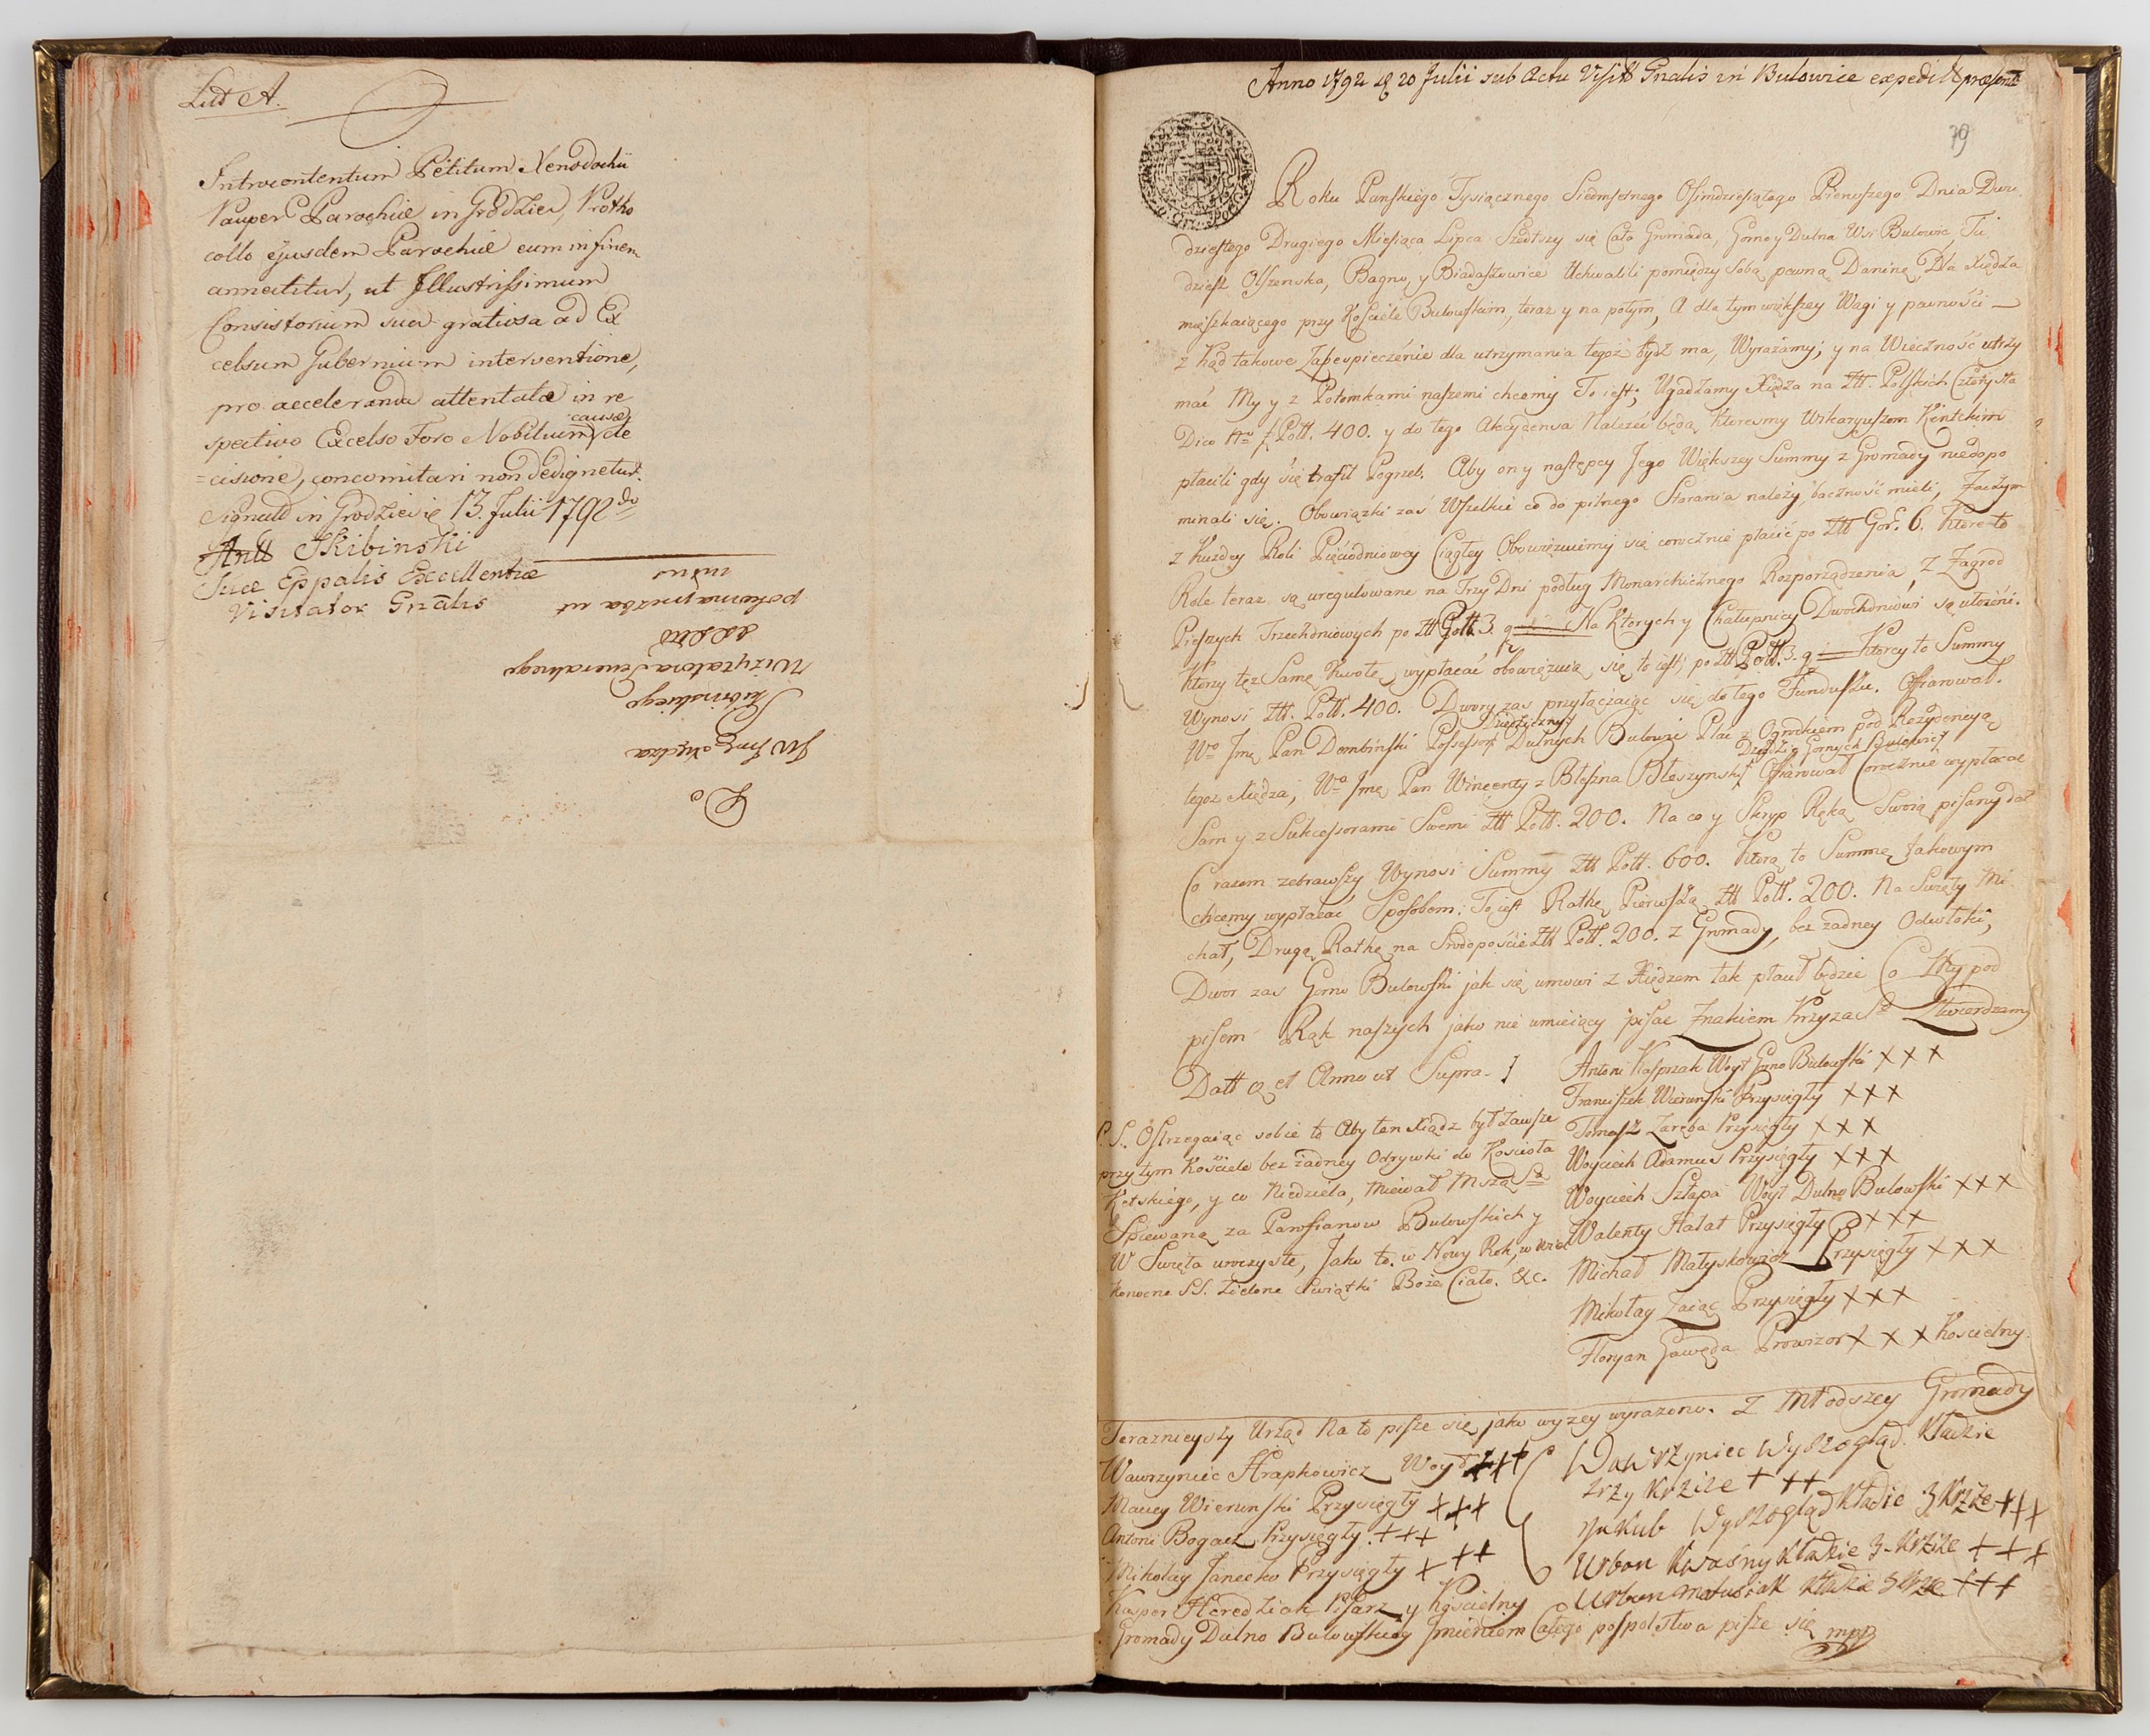 Litt A.
Introcontentum Petitum Xenodochii
Pauper Parochiæ in Grodziec, Protho
collo ejusdem Parochiæ eum in finem
annectitur, ut Illustrissimum
Consistorium sua gratiosa ad Ex
celsum Gubernium interventione,
pro acceleranda attentatæ in re
spectivo Excelso Foro Nobilium causæ de
=cisione, concomitari non dedignetur.
Signatt in Grodziec 13. Julii 1792do
Antt Skibinski
Suæ Eppalis Excellentiæ
Visitator Gnalis
Do
JW Jmę Xiędza
Skibinskiego
Wizytatora Generalnego
pokorna prozba ut
intus
Anno 1792 20 Julii sub Actu Visitt Gnalis in Bulowice expedit præsent
79
Roku Panskiego Tysiącznego Siedmsetnego Osimdziesiątego Pierwszego Dnia Dwu
dziestego Drugiego Miesiąca Lipca Szedtszy się Cała Gromada, Gorno y Dulna Wsi Bulowic, Tu
dziesz Olszenska, Bagno, y Biadaszowice Uchwalili pomiędzy Sobą, pewną Daninę, Dla Xiędza
mieszkaiącego przy Kosciele Bulowskim, teraz y na potym, A dla tym większey Wagi y pewności
z kąd takowe Zabespieczenie dla utrzymania tegoż bydź ma, Wyrażamy; y na Wieczność utrzy
mać My y z Potomkami naszemi chcemy To iest; Ugadzamy Xiędza na Ztt. Polskich Czterysta
Dico Nro f Poll. 400. y do tego Akcydensa Należeć będą, któresmy Wikaryuszom Kentckim
płacili gdy się trafił Pogrzeb. Aby on y następcy Jego Większey Summy z Gromady niedopo
minali się. Obowiązki zas Wszelkie co do pilnego Starania należy, baczność mieli, Zaczym
z Kazdey Roli Pięciodniowey Ciągłey Obowięzuiemy się corocznie płacić po Ztt Gor. 6. Ktore to
Role teraz są uregulowane na Trzy Dni podług Monarchicznego Rozporządzenia, Z Zagrod
Pieszych Trzechdniowych po Ztt Poll 3. g Na Ktorych y Chałupnicy Dwochdniowi są ułożeni.
Ktorzy tęz Samę Kwotę wypłacać obowięzuią się to iest; po Ztt Poll. 3. g Ktorey to Summy
Wynosi Ztt. Poll. 400. Dwory zas przyłączaiąc się do tego Funduszu. Offiarował.
Wo Jmę Pan Dembiński Possessor Dziedziczny Dulnych Bulowic Plac z Ogrodkiem pod Rezydencyą
tegoz Xiędza, Wo Jmę Pan Wincenty z Błeszna Bleszynski Dziedzic Gornych Bulowic Offiarował Corocznie wypłacać
Sam y z Sukcessorami Swemi Ztt Poll. 200. Na co y Skryp Ręką Swoią pisany dał
Co razem zebrawszy Wynosi Summy Ztt Poll. 600. Ktorą to Summę Jakowym
chcemy wypłacać Sposobem: To iest Ratkę Pierwszą Ztt Poll. 200. Na Swięty Mi
chał, Drugą Ratkę na Srodopoście Ztt Poll. 200. z Gromady, bez zadney Odwłoki,
Dwor zas Gorno Bulowski jak się umowi z Xiędzem tak płacił będzie Co Przy pod
pisem Rąk naszych jako nie umieiący pisac Znakiem Krzyza So Stwierdzamy
Datt et Anno ut Supra.
Antoni Kasprzak Woyt Gorno Bulowski XXX
Franciszek Wierunski Przysięgły XXX
Tomasz Zaręba Przysięgły XXX
Woyciech Adamus Przysięgły XXX
Woyciech Szlapa Woyt Dulno Bulowski XXX
Walenty Hałat Przysięgły XXX
Michał Matyskowicz Przysięgły XXX
Mikołay Zaiąc Przysięgły XXX
Floryan Gawęda Prowizor X X X Koscielny
P.S. Ostrzegaiąc sobie to Aby ten Xiądz był zawsze
przy tym Kościele bez zadney Odrywki do Kościoła
Kętskiego, y co Niedziela, Miewał Mszą Stą
Spiewaną za Parafianow Bulowskich y
W Swięta uroczyste, Jako to. w Nowy Rok, w Wiel
kanocne SS. Zielone Swiątki Boze Ciało. &c.
Teraznieyszy Urząd Na to pisze się, jako wyzey wyrazono. Z Młodszey Gromady
Wawrzyniec Hrapkowicz Woyt +++
Maciey Wierunski Przysięgły +++
Antoni Bogacz Przysięgły. +++
Mikołay Janeczko Przysięgły +++
Wawrzyniec Wyszogląd Kładzie
trzy krzize + ++
Jakub Wyszogląd Kładzie 3 krzże +++
Urban Kwasny kładzie 3- krzize +++
Urban Matusiak kładzie 3 krze +++
Kasper Heredziak Pisarz y Koscielny
Gromady Dulno Bulowskiey Jmieniem Całego pospolstwa pisze się mpp